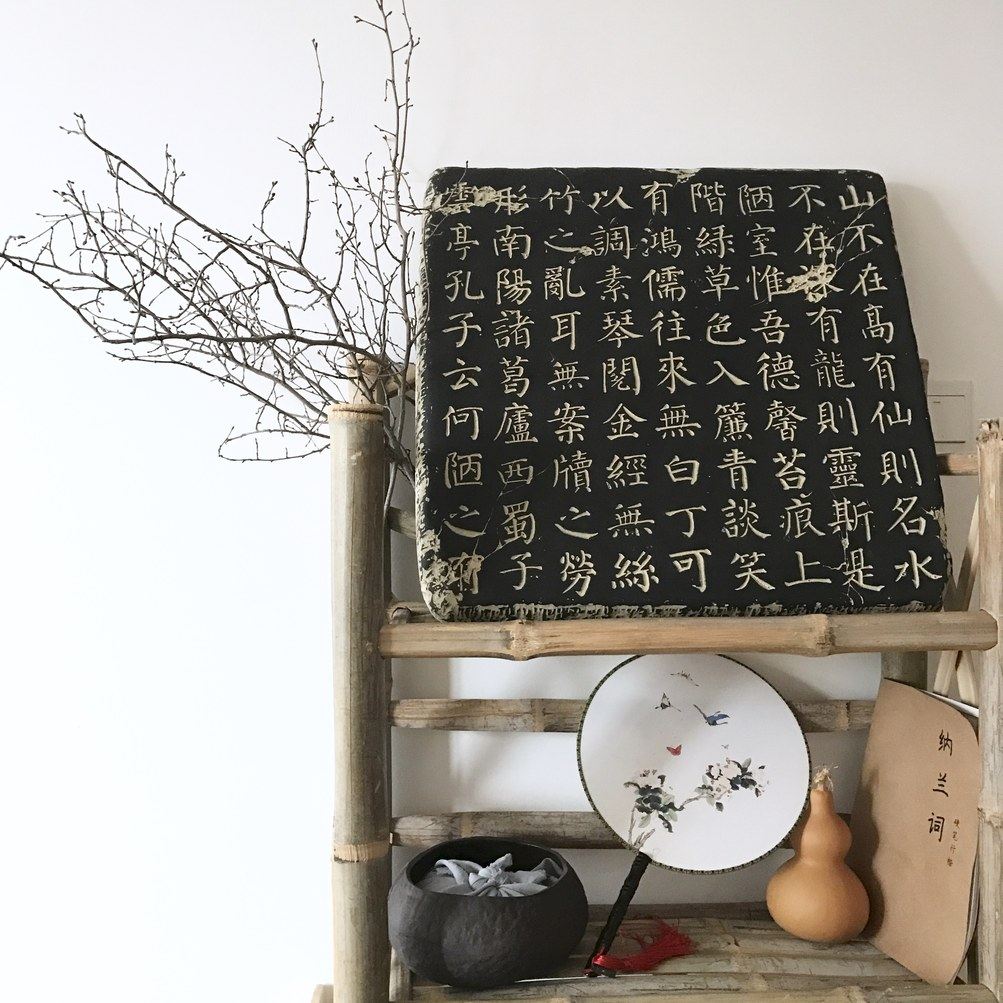 山不在高有仙則名水
不在深有龍則靈斯是
陋室惟吾德馨苔痕上
階綠草色入簾青談笑
有鴻儒往來無白丁可
以調素琴閱金經無絲
竹之亂耳無案牘之勞
形南陽諸葛廬西蜀子
雲亭孔子云何陋之有
纳兰词
硬笔行楷